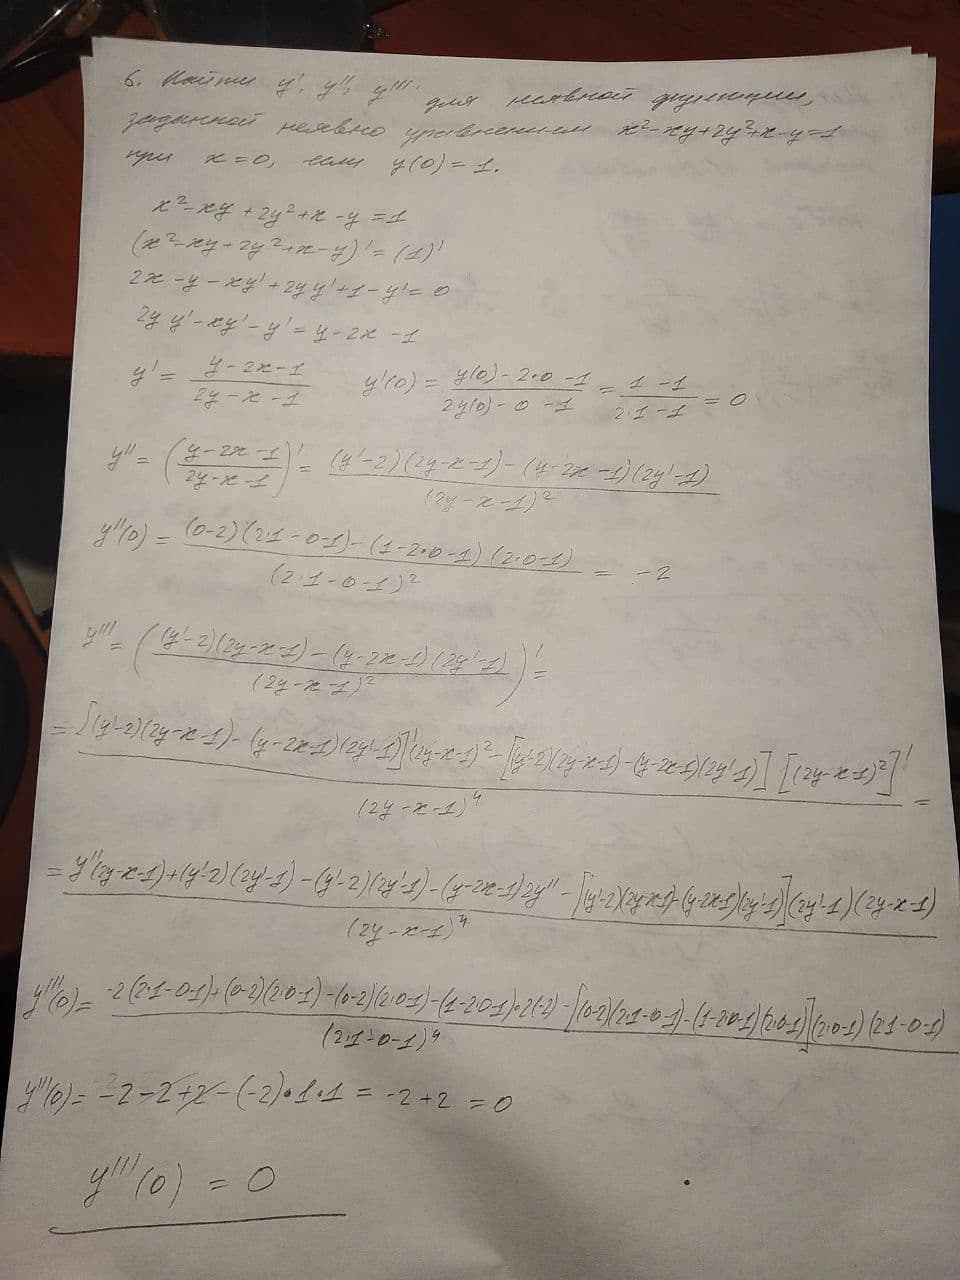 6. Найти y', y'', y''' для неявной функции,
заданной неявно уравнением x²-xy+2y²+x-y=1
при x=0, если y(0)=1.
x²-xy+2y²+x-y=1
(x²-xy+2y²+x-y)'=(1)'
2x-y-xy'+2yy'+1-y'=0
2yy'-xy'-y'=y-2x-1
y' = (y-2x-1)/(2y-x-1) y'(0) = (y(0)-2·0-1)/(2y(0)-0-1) = (1-1)/(2·1-1) = 0
y'' = ((y-2x-1)/(2y-x-1))' = ((y'-2)(2y-x-1)-(y-2x-1)(2y'-1))/(2y-x-1)²
y''(0) = ((0-2)(2·1-0-1)-(1-2·0-1)(2·0-1))/(2·1-0-1)² = -2
y''' = (((y'-2)(2y-x-1)-(y-2x-1)(2y'-1))/(2y-x-1)²)' =
= ([(y'-2)(2y-x-1)-(y-2x-1)(2y'-1)]'(2y-x-1)²-[(y'-2)(2y-x-1)-(y-2x-1)(2y'-1)][(2y-x-1)²]')/(2y-x-1)⁴ =
= (y''(2y-x-1)+(y'-2)(2y'-1)-(y'-2)(2y'-1)-(y-2x-1)2y''-[(y'-2)(2y-x-1)-(y-2x-1)(2y'-1)](2y'-1)(2y-x-1))/(2y-x-1)⁴
y'''(0) = (-2(2·1-0-1)+(0-2)(2·0-1)-(0-2)(2·0-1)-(1-2·0-1)·2(-2)-[(0-2)(2·1-0-1)-(1-2·0-1)(2·0-1)](2·0-1)(2·1-0-1))/(2·1-0-1)⁴
y'''(0) = -2-2+2-(-2)·1·1 = -2+2 = 0
y'''(0) = 0